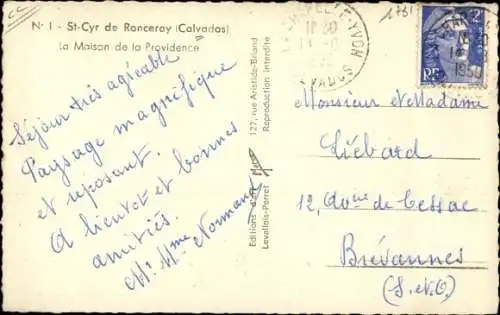 N° 1 - St-Cyr de Ronceray (Calvados)
La Maison de la Providence
Séjour très agréable
Paysage magnifique
et reposant.
A bientôt et bonnes
amitiés.
Mr Mme Normand
Editions
Levallois-Perret
127, rue Aristide-Briand
Reproduction interdite
Monsieur et Madame
Liébard
12, Ave de Cessac
Brévannes
(S.&O.)
RF
1950